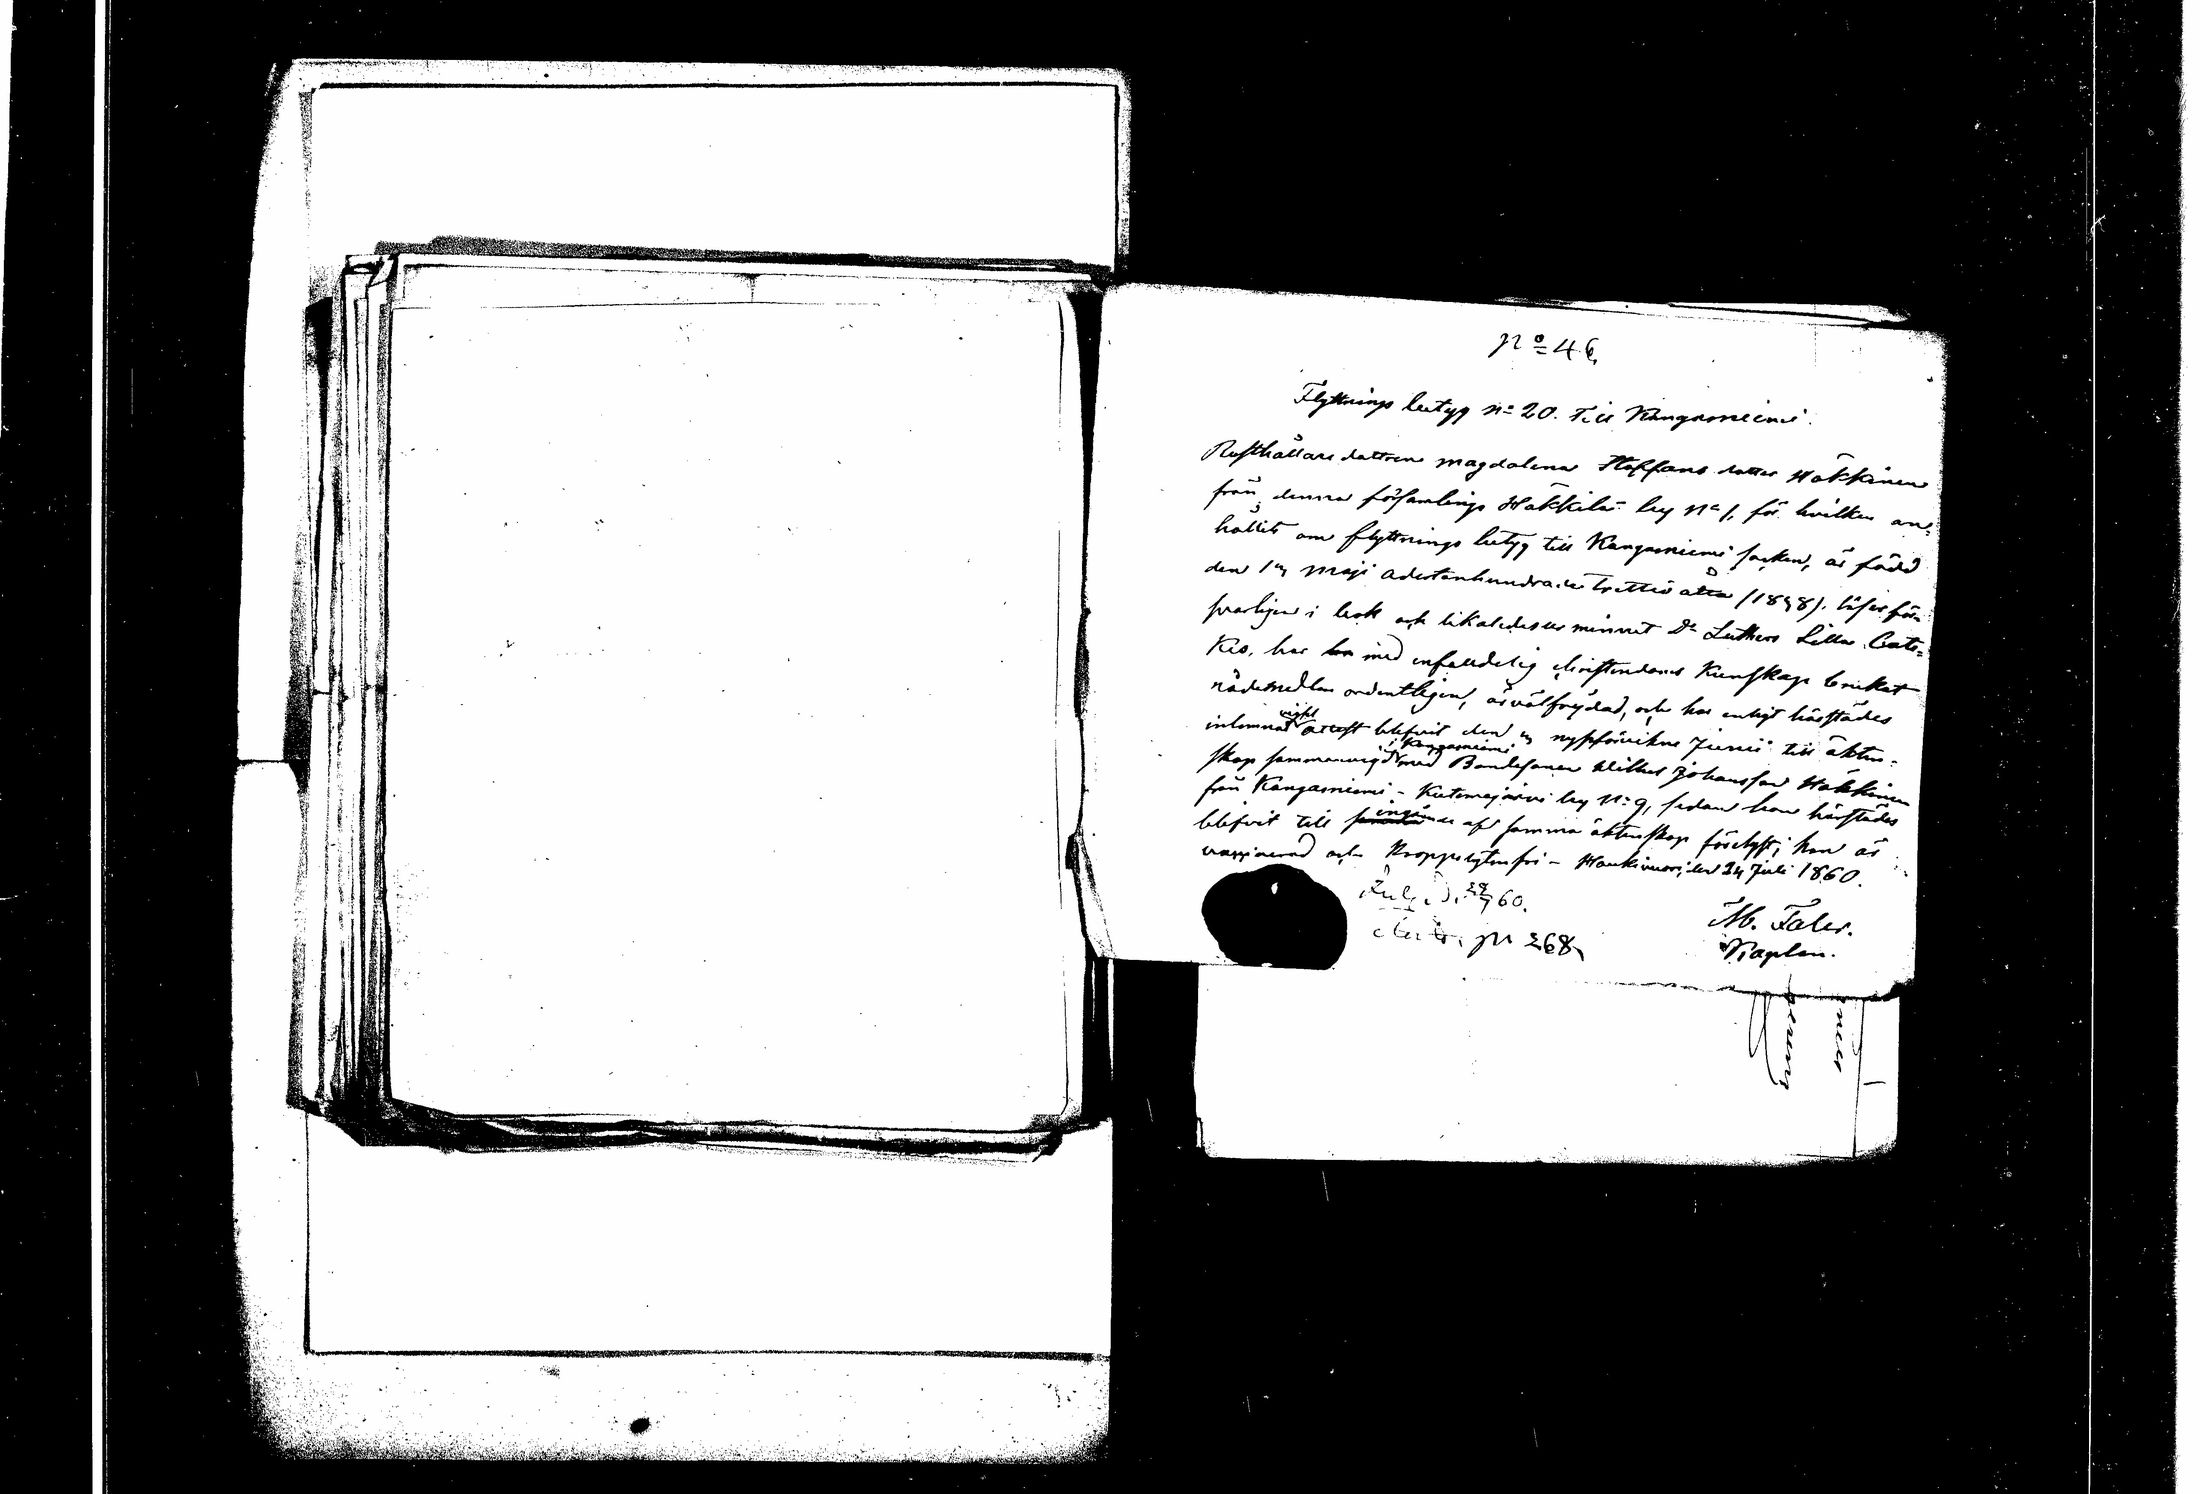 No 46.
Flyttnings betyg No 20. till Kangasniemi.
Rusthållare dottren Magdalena Staffans dotter Häkkinen
från denna församlings Häkkilä by No 1, för hvilken an-
hållits om flyttnings betyg till Kangasniemi socken, är född
den Maji adertonhundrade trettio åtta (1838). läser för-
svarligen i bok och likaledes ur minnet Dr Luthers Lilla Cate-
kes, har med enfaldelig christendoms kunskap brukat
nådemedlen ordentligen, är välfrejdad, och har enligt härstädes
inlemnat vigsel attest blefvit den nystförvikne Junii till äkten-
skap sammanvigd i Kangasniemi med Bondesonen Johansson Häkkinen
från Kangasniemi - Kutemajärvi by No 9, sedan hon härstädes
blefvit till ingående af samma äktenskap förelyst; hon är
vaccinerad och kroppslytes fri - Haukivuori, den 24 Juli 1860.
60.
No 268.
M. Faler.
Kaplan.